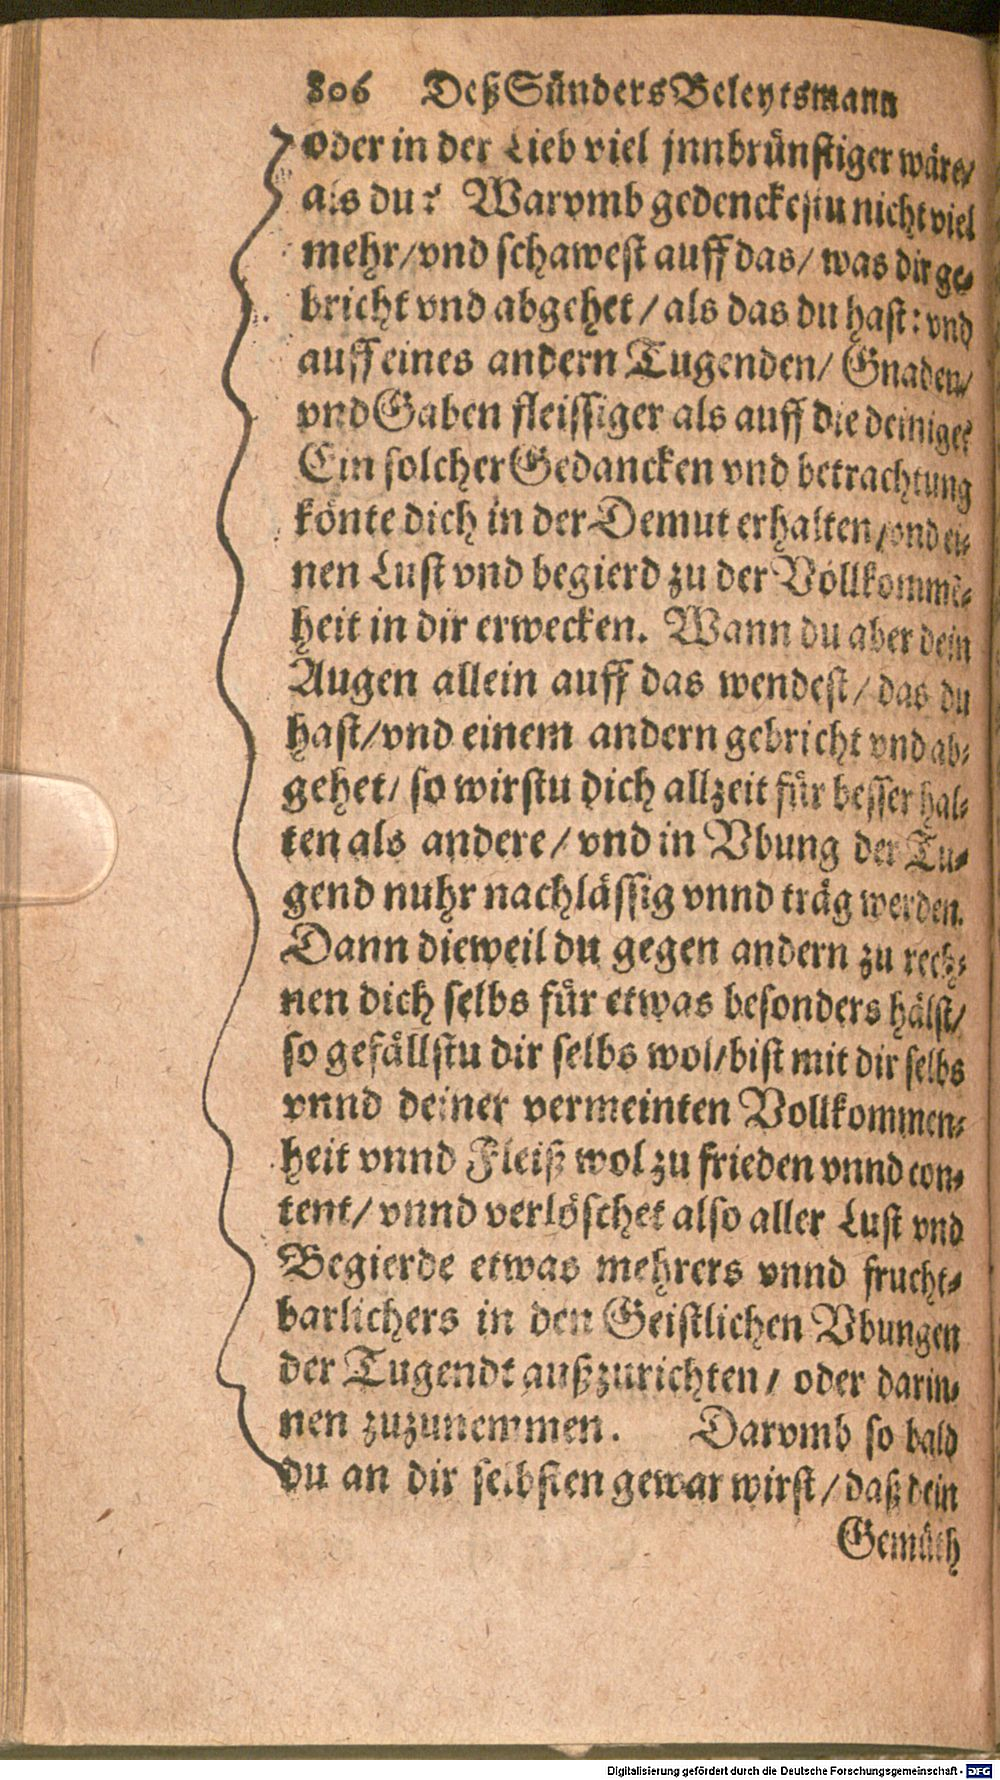 806 Deß Sünders Beleytsmann
oder in der Lieb viel jnnbrünstiger wäre/
als du? Warvmb gedenckestu nicht viel
mehr/vnd schawest auff das/ was dir ge-
bricht vnd abgehet/ als das du hast: vnd
auff eines andern Tugenden/ Gnaden/
vnd Gaben fleissiger als auff die deinige?
Ein solcher Gedancken vnd betrachtung
könte dich in der Demut erhalten/vnd ei-
nen Lust vnd begierd zu der Vollkommẽ-
heit in dir erwecken. Wann du aber dein
Augen allein auff das wendest/ das du
hast/vnd einem andern gebricht vnd ab-
gehet/ so wirstu dich allzeit für besser hal-
ten als andere/ vnd in Vbung der Tu-
gend nuhr nachlässig vnnd träg werden.
Dann dieweil du gegen andern zu rech-
nen dich selbs für etwas besonders hälst/
so gefällstu dir selbs wol/bist mit dir selbs
vnnd deiner vermeinten Vollkommen-
heit vnnd Fleiß wol zu frieden vnnd con-
tent/ vnnd verlöschet also aller Lust vnd
Begierde etwas mehrers vnnd frucht-
barlichers in den Geistlichen Vbungen
der Tugendt außzurichten/ oder darin-
nen zuzunemmen. Darvmb so bald
du an dir selbsten gewar wirst/ daß dein
Gemüth
Digitalisierung gefördert durch die Deutsche Forschungsgemeinschaft - DFG